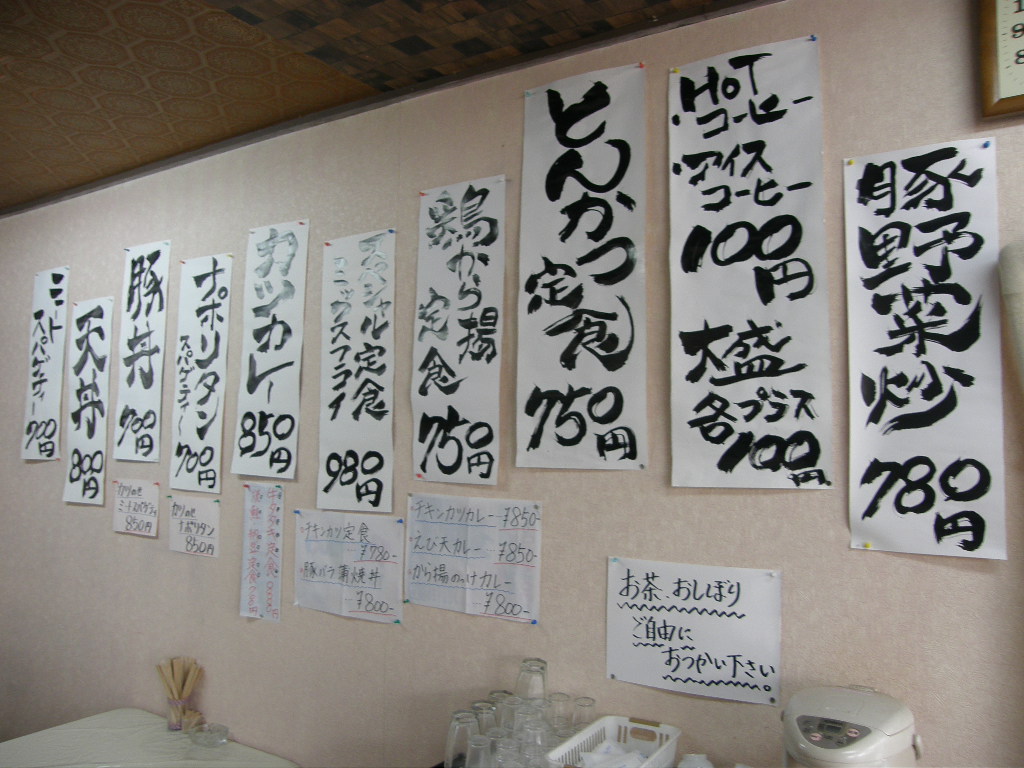 ミート
スパゲティー
700円
天丼
800円
豚丼
700円
ナポリタン
スパゲティー
700円
カツカレー
850円
スペシャル定食
980円
鶏から揚
定食
750円
とんかつ
定食
750円
HOT
コーヒー
アイス
コーヒー
100円
大盛
各プラス
100円
豚野菜炒
780円
850円
カツのせ
ナポリタン
850円
・チキンカツ定食
¥780-
・豚バラ
焼丼
¥800-
・チキンカツカレー
¥850-
・えび天カレー
¥850-
・から揚のっけカレー
¥800-
お茶、おしぼり
ご自由に
おつかい下さい。